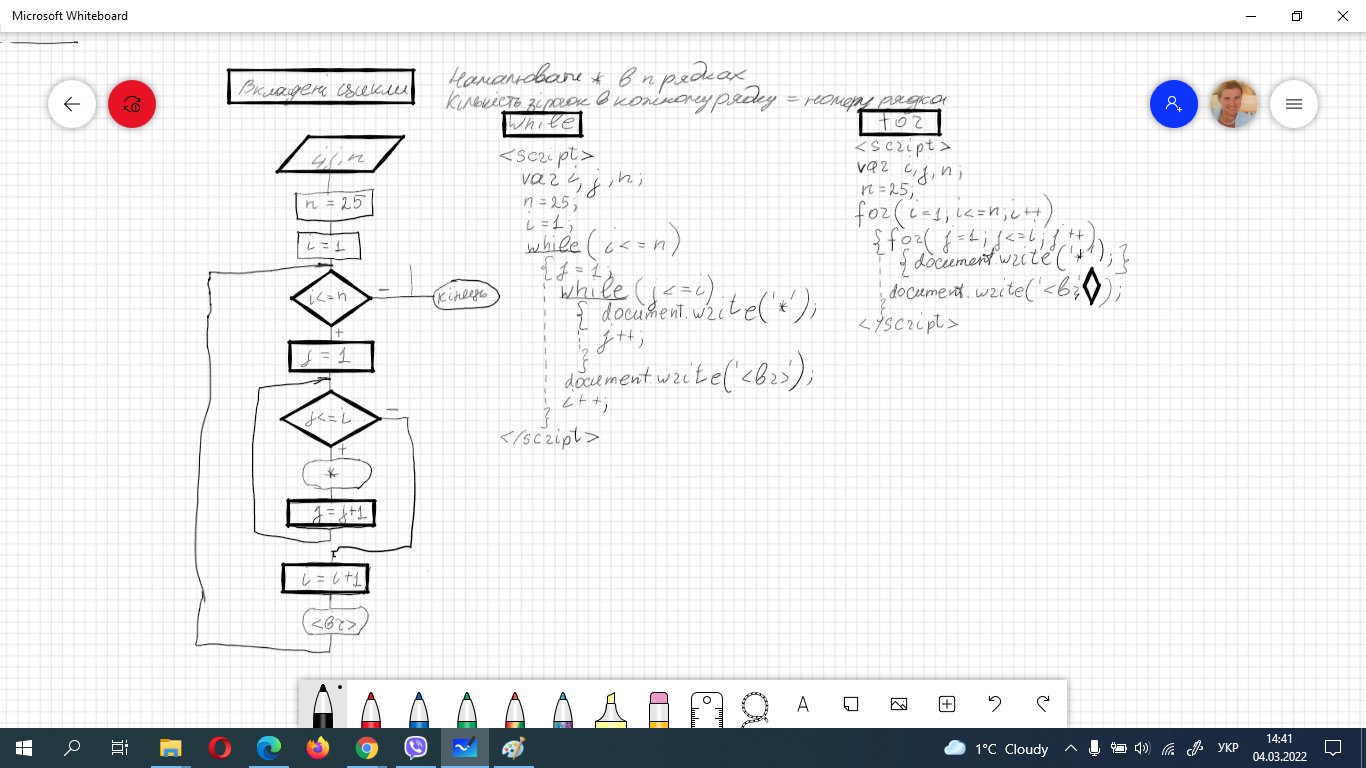 Microsoft Whiteboard
Вкладені цикли
Намалювати * в n рядках
Кількість зірок в кожному рядку = номеру рядка
i, j, n
n = 25
i = 1
i<=n
−
кінець
+
j = 1
j<=i
−
+
*
j = j+1
i = i+1
<br>
while
<script>
var i, j, n;
n = 25;
i = 1;
while ( i <= n )
{ j = 1;
while ( j <= i )
{ document.write('*');
j++;
}
document.write('<br>');
i++;
}
</script>
for
<script>
var i, j, n;
n = 25;
for( i=1; i<=n; i++)
{ for( j=1; j<=i; j++)
{ document.write('*'); }
document.write('<br');
}
</script>
1°C Cloudy
УКР
14:41
04.03.2022